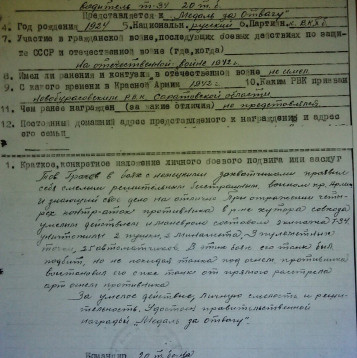 водитель Т-34 20 т.б.
Представляется к "Медаль за Отвагу"
4. Год рождения 1924 5. Национальн. русский 6. Партийн. ВКП
7. Участие в гражданской войне, последующих боевых действиях по защи-
те СССР и отечественной войне (где, когда)
на отечественной войне 1942 г.
8. Имел ли ранения и контузии в отечественной войне не имел
9. С какого времени в Красной Армии 1942 г. 10. Каким РВК призван
РВК Саратовской области
11. Чем ранее награжден (за какие отличия) не представлялся
12. Постоянный домашний адрес представляемого к награждению и адрес
его семьи
1. Краткое, конкретное изложение личного боевого подвига или заслуг
Тов в боях с немецкими захватчиками проявил
себя смелым решительным бесстрашным, воином Кр. Армии
и знающий свое дело на отлично. При отражении четы-
рех контратак противника в р-не хутора совхоза
умелым действием и маневром составом экипажа Т-34
уничтожил 2 пушки, 2 миномета, 3 пулеметных
точки, 25 автоматчиков. В этом бою его танк был
подбит, но не покидая танка под огнем противника
его танк от прямого расстрела
арт огнем противника.
За умелое действие, личную смелость и реши-
тельность. Удостоен правительственной
награды "Медаль за отвагу".
Командир 20 т. б-на